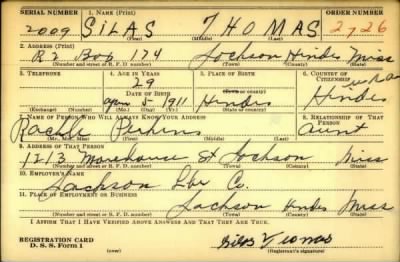 SERIAL NUMBER 1. NAME (Print) ORDER NUMBER
2009 SILAS THOMAS 2726
(First) (Middle) (Last)
2. ADDRESS (Print)
R2 Box 174 Jackson Hinds Miss
(Number and street or R. F. D. number) (Town) (County) (State)
3. TELEPHONE 4. AGE IN YEARS 5. PLACE OF BIRTH 6. COUNTRY OF CITIZENSHIP
29
DATE OF BIRTH (Town or county)
Apr 5 1911 Hinds Hinds
(Exchange) (Number) (Mo.) (Day) (Yr.) (State or country)
7. NAME OF PERSON WHO WILL ALWAYS KNOW YOUR ADDRESS 8. RELATIONSHIP OF THAT PERSON
Rachel Perkins Aunt
(Mr., Mrs., Miss) (First) (Middle) (Last)
9. ADDRESS OF THAT PERSON
1213 St Jackson Miss
(Number and street or R. F. D. number) (Town) (County) (State)
10. EMPLOYER'S NAME
Jackson Lbr Co.
11. PLACE OF EMPLOYMENT OR BUSINESS
Jackson Hinds Miss
(Number and street or R. F. D. number) (Town) (County) (State)
I AFFIRM THAT I HAVE VERIFIED ABOVE ANSWERS AND THAT THEY ARE TRUE.
REGISTRATION CARD
D. S. S. Form 1
Silas Thomas
(Registrant's signature)